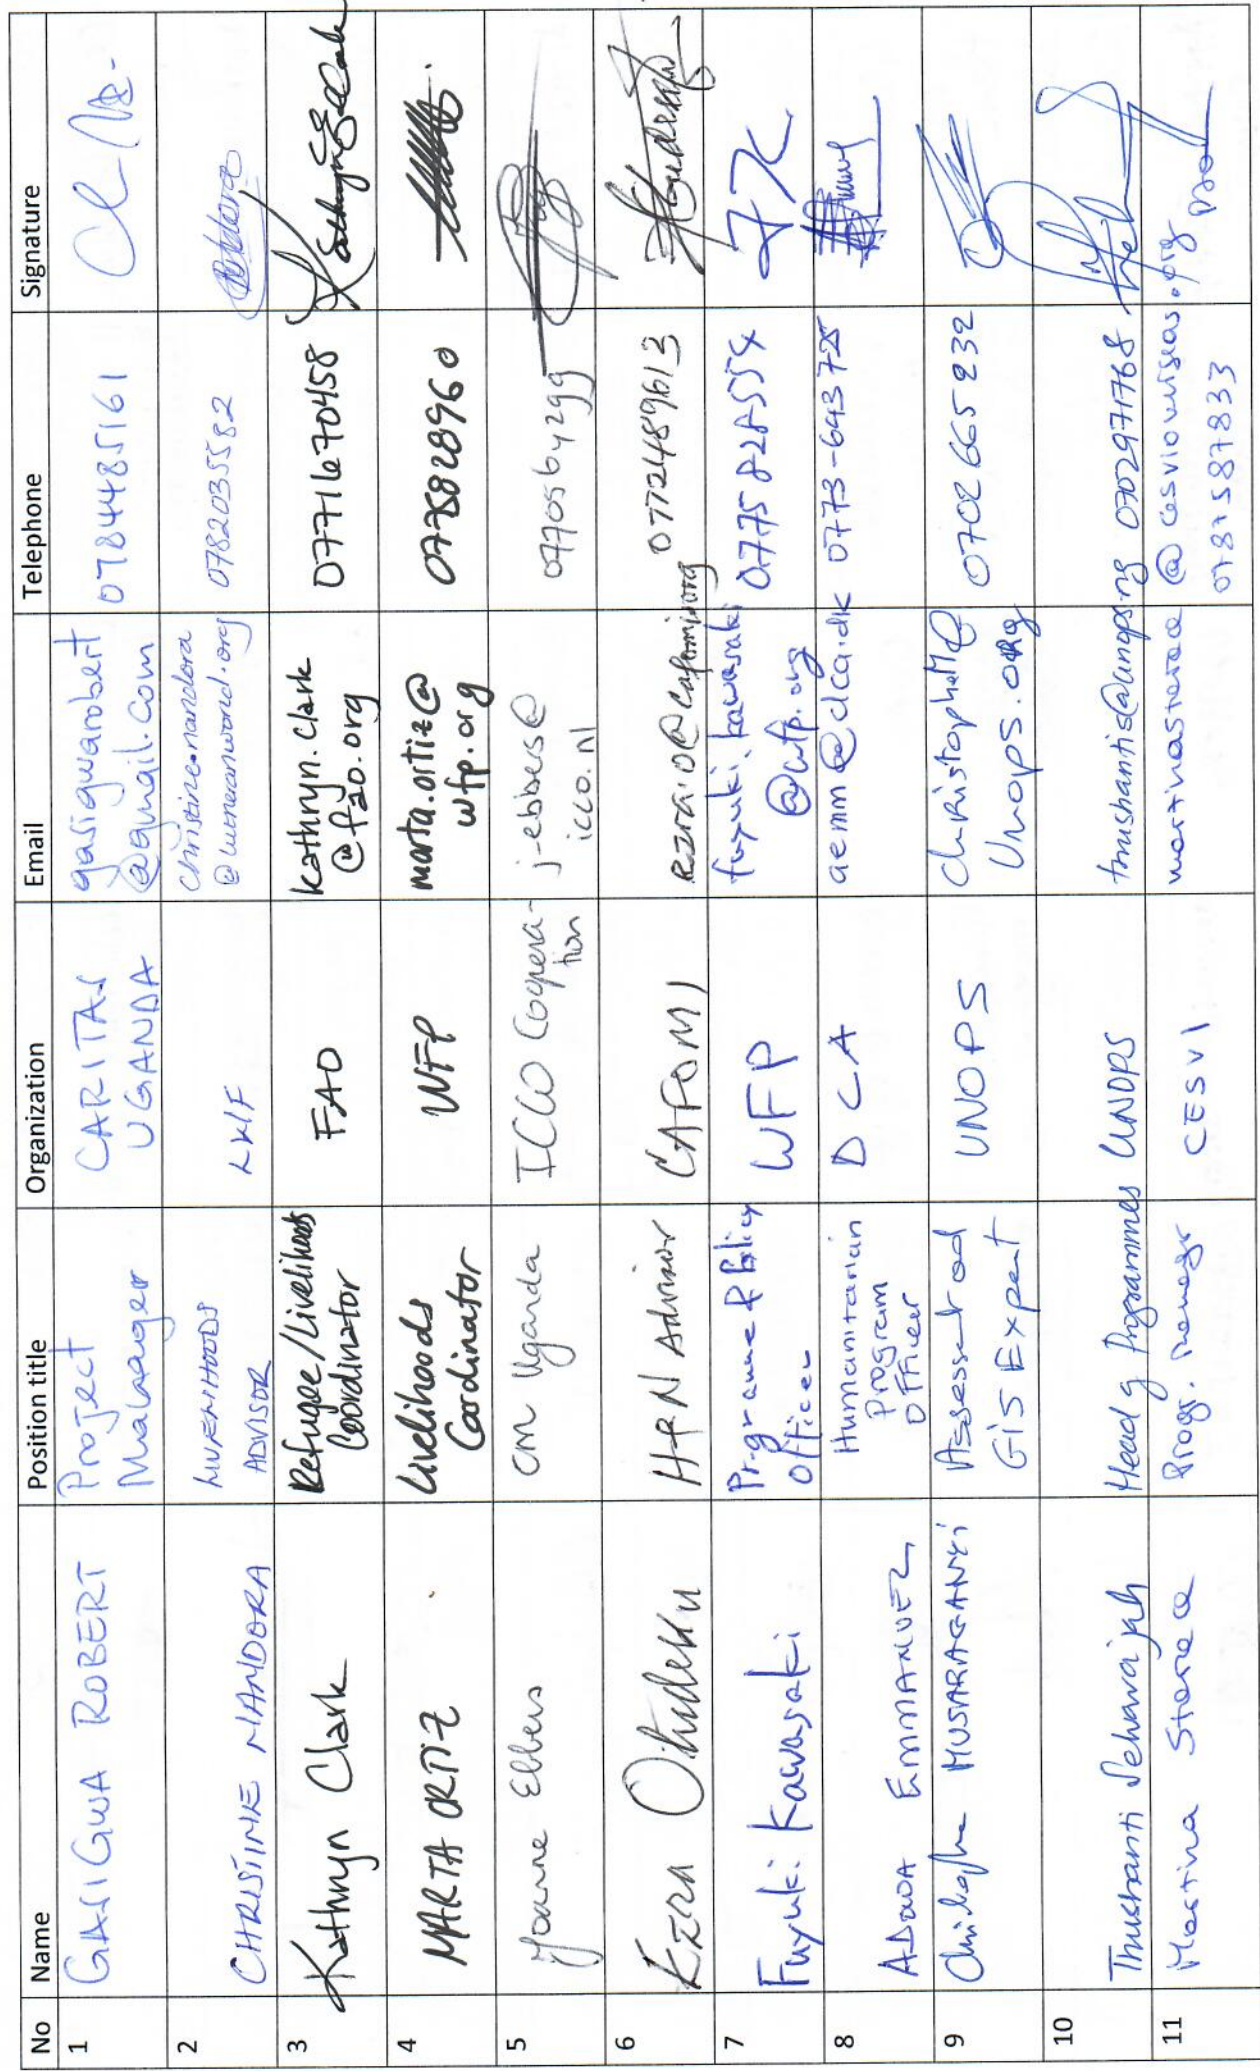 No Name Position title Organization Email Telephone Signature
1 GASIGWA ROBERT Project Manager CARITAS UGANDA gasigwarobert @gmail.com 0784485161
2 CHRISTINE NANDORA LIVELIHOODS ADVISOR LWF christine.nandora @lutheranworld.org 0782035582
3 Kathryn Clark Refugee/Livelihoods Coordinator FAO kathryn.clark @fao.org 0771670458
4 MARTA ORTIZ Livelihoods Coordinator WFP marta.ortiz@ wfp.org 0775828960
5 Yoanne Ebbers CM Uganda ICCO Coopera- tion j-ebbers@ icco.nl 0770564299
6 H&N Advisor CAFOMI 0772489613
7 Fuyuki Kawasaki Programme & Policy Officer WFP fuyuki.kawasaki @wfp.org
8 EMMANUEL Humanitarian Program Officer DCA aemm@dca.dk 0773-643725
9 MUSARAGANYI GIS Expert UNOPS ChristopheM@ Unops.org 0702665232
10 Thushanti Head of Programmes UNOPS 0702971768
11 Martina Progr. Manager CESVI 0787587833